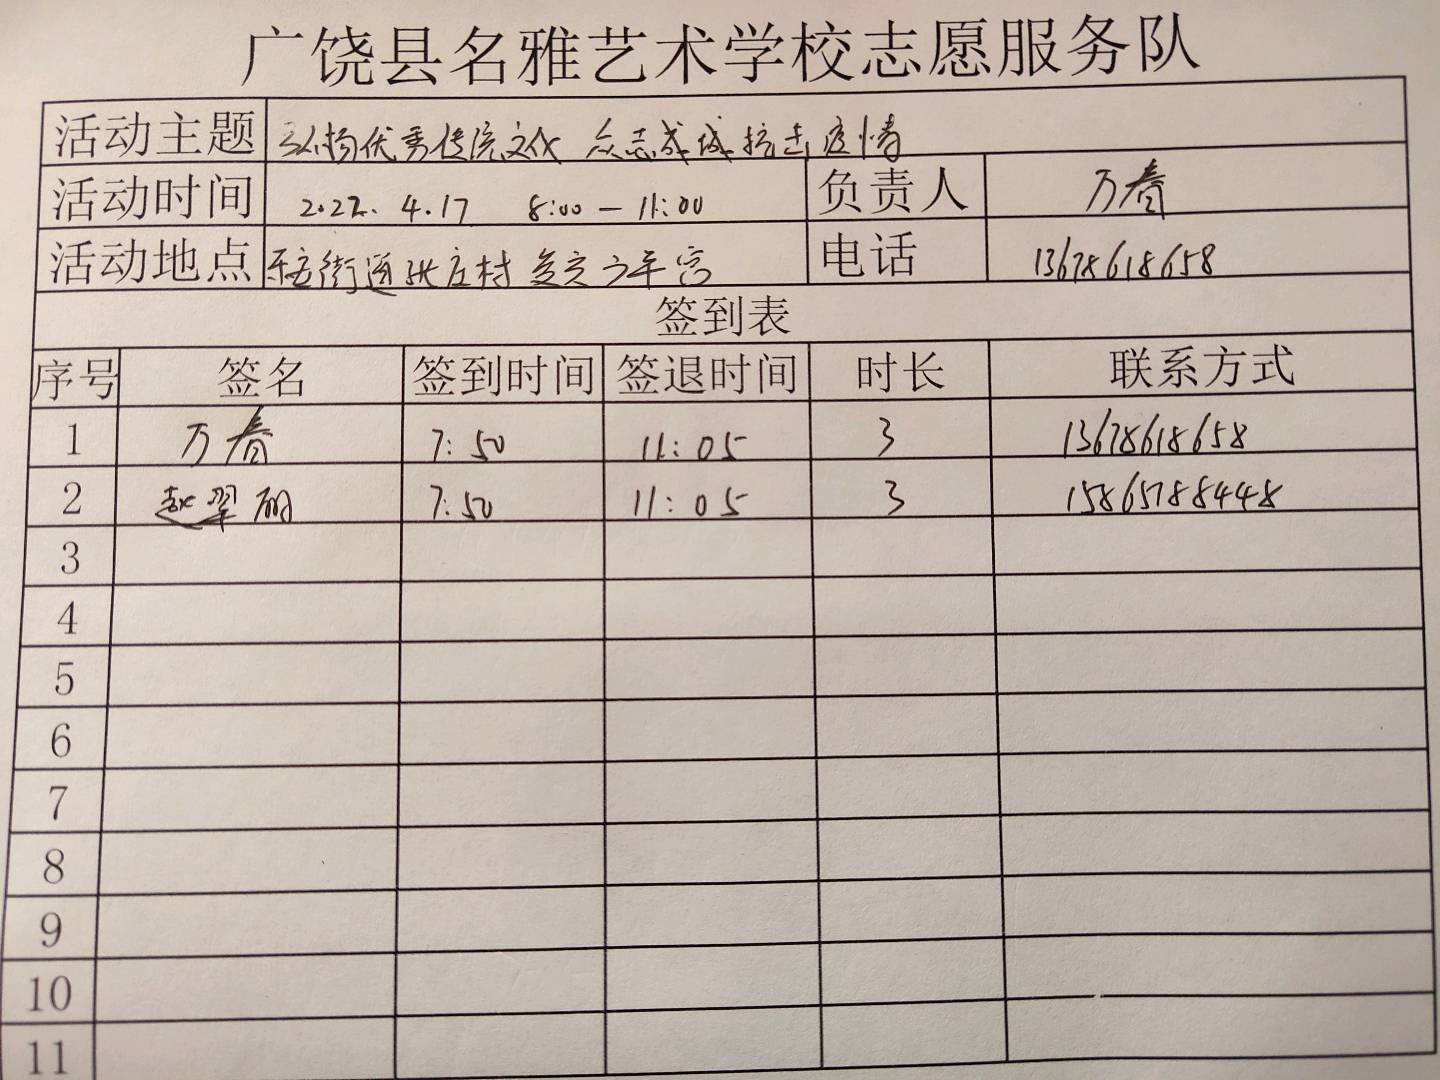 广饶县名雅艺术学校志愿服务队
活动主题 弘扬优秀传统文化 众志成城抗击疫情
活动时间 2022.4.17 8:00—11:00 负责人 万春
活动地点 乐安街道张庄村 少年宫 电话 13678618658
签到表
序号 签名 签到时间 签退时间 时长 联系方式
1 万春 7:50 11:05 3 13678618658
2 赵翠丽 7:50 11:05 3 15865788448
3
4
5
6
7
8
9
10
11